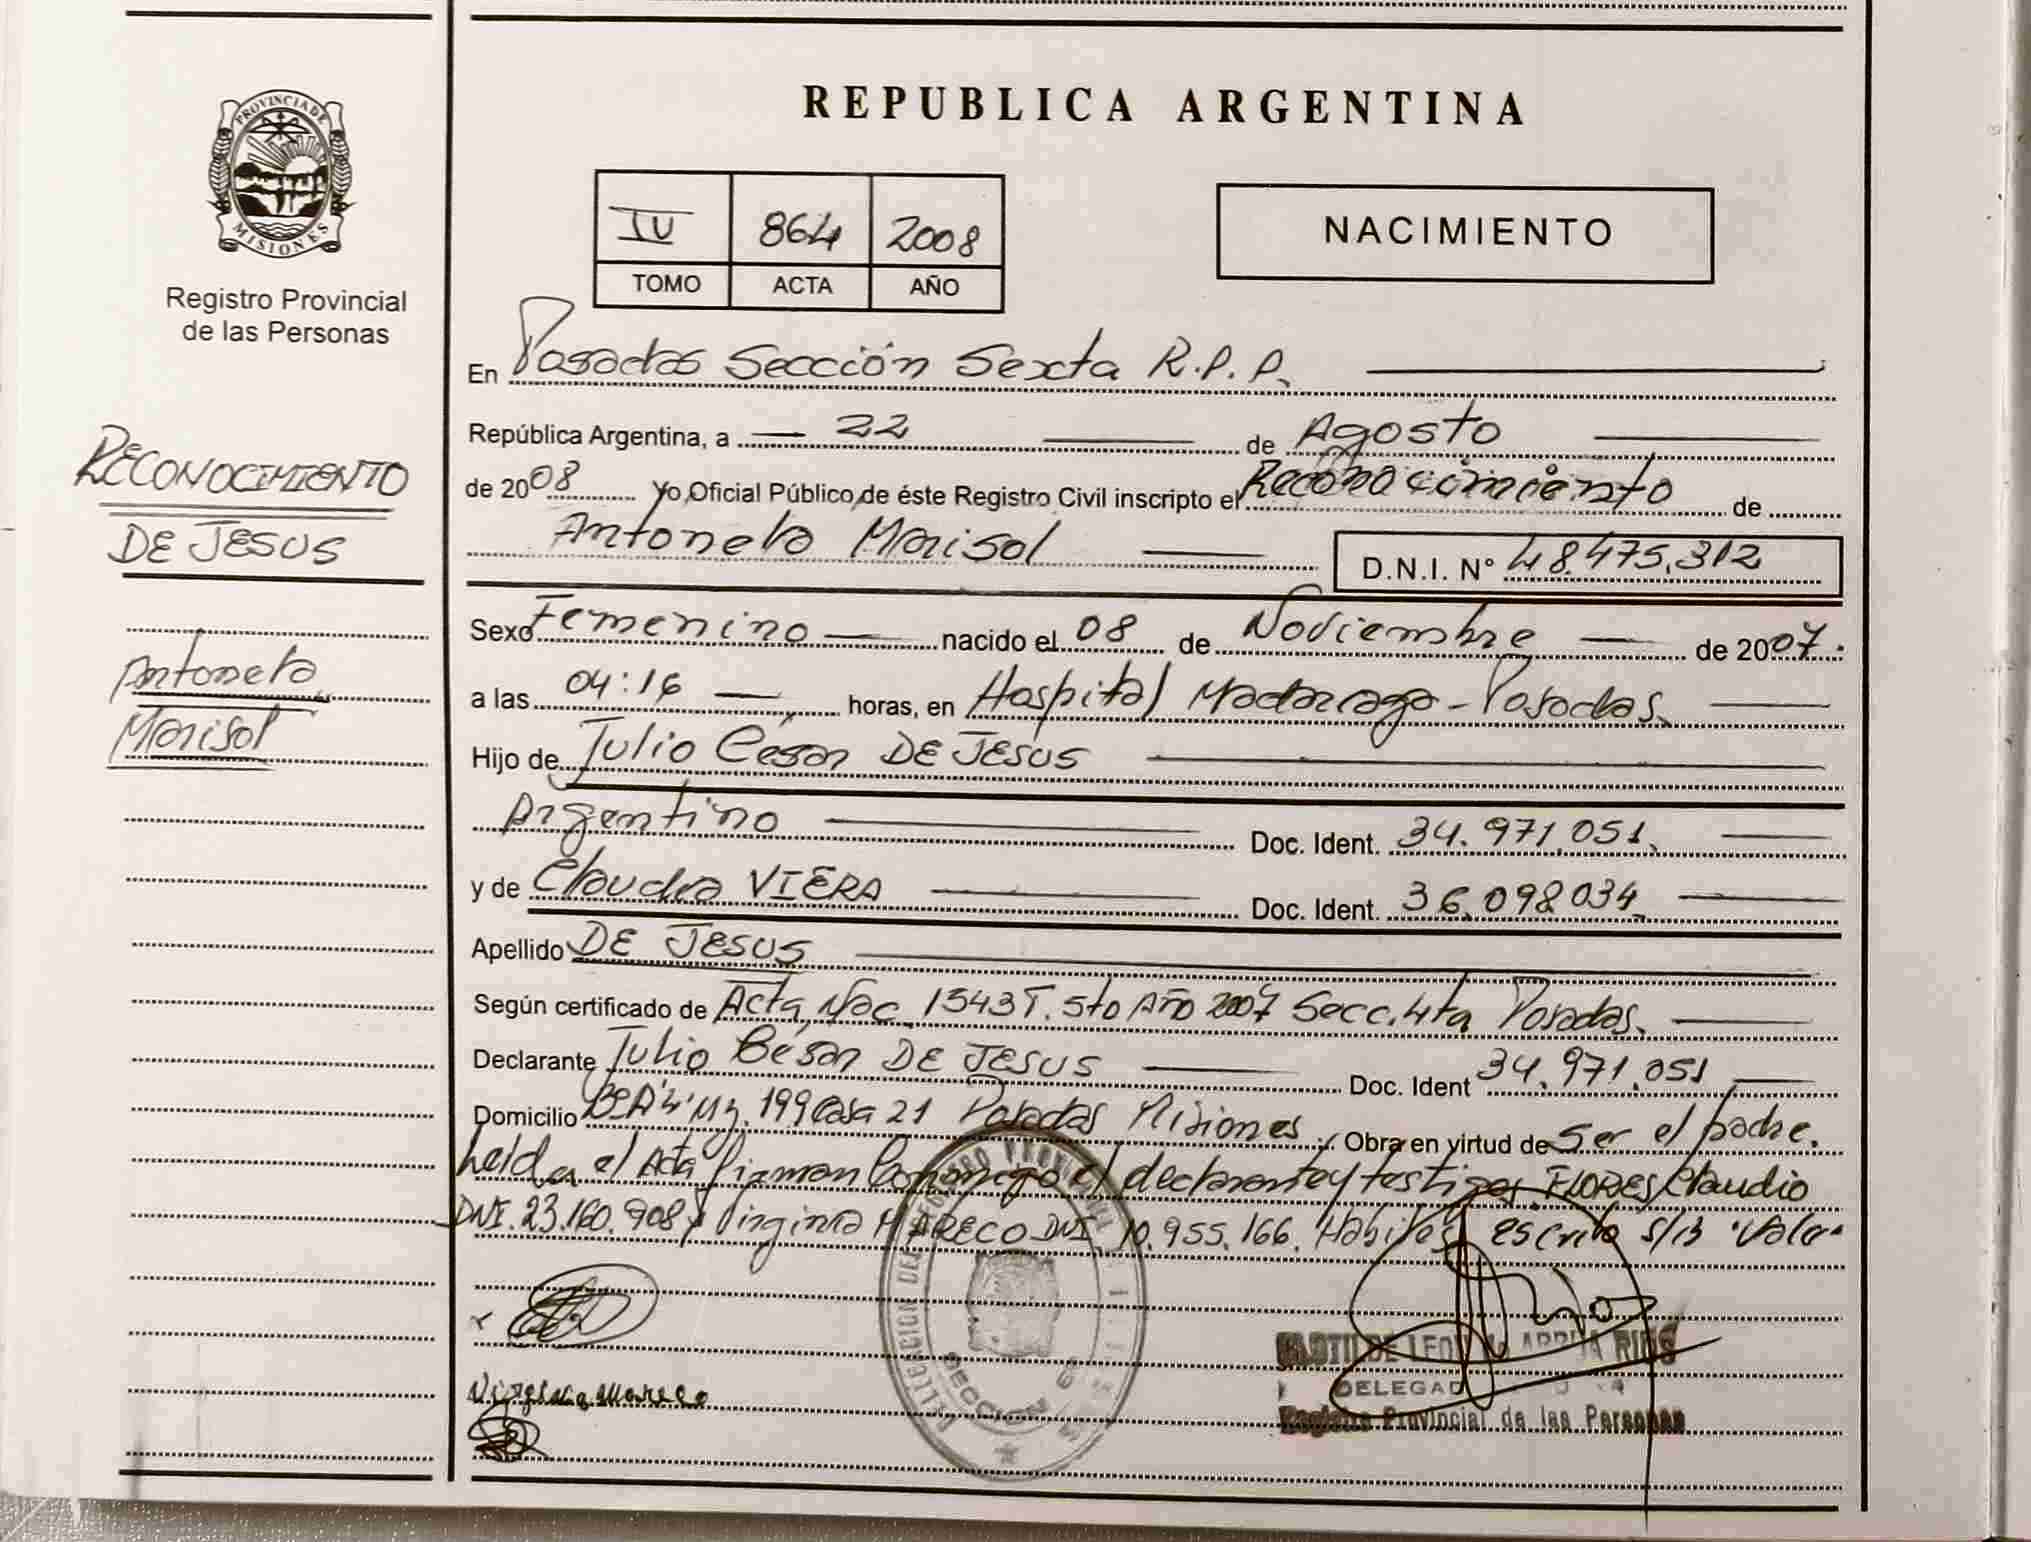 PROVINCIA DE
MISIONES
Registro Provincial
de las Personas
RECONOCIMIENTO
DE JESUS
Antonela
Marisol
REPUBLICA ARGENTINA
IV 864 2008
TOMO ACTA AÑO
NACIMIENTO
En Posadas Sección Sexta R.P.P.
República Argentina, a 22 de Agosto
de 2008 Yo, Oficial Público de éste Registro Civil inscripto el Reconocimiento de
Antonela Marisol D.N.I. N° 48.475.312
Sexo Femenino nacido el 08 de Noviembre de 2007.
a las 04:16 horas, en Hospital Madariaga - Posadas.
Hijo de Julio César DE JESUS
Argentino Doc. Ident. 34.971.051.
y de Claudia VIERA Doc. Ident. 36.098.034.
Apellido DE JESUS
Según certificado de Acta Nac. 1543 T. 5to Año 2007 Secc. 4ta Posadas.
Declarante Julio César DE JESUS Doc. Ident 34.971.051
Domicilio Mz. 199 Casa 21 Posadas Misiones. Obra en virtud de ser el padre.
Leída el Acta firman conmigo el declarante y testigos FLORES Claudio
DNI. 23.160.908 y Virginia MARECO DNI. 10.955.166. Hábiles, escrito s/B "Vale"
Virginia Mareco
SECCION 6
DELEGAD
Registro Provincial de las Personas